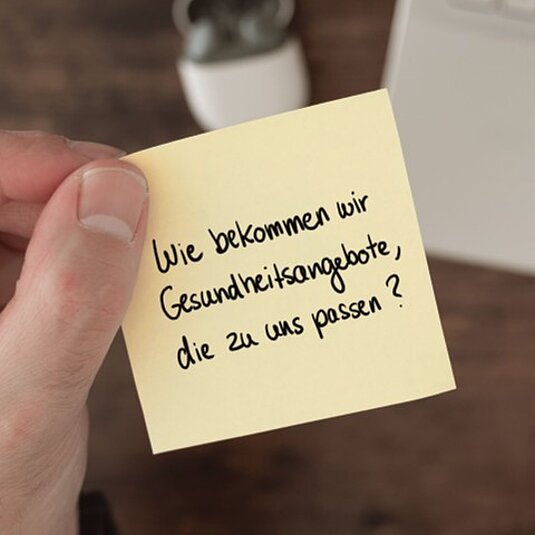 Wie bekommen wir
Gesundheitsangebote,
die zu uns passen?